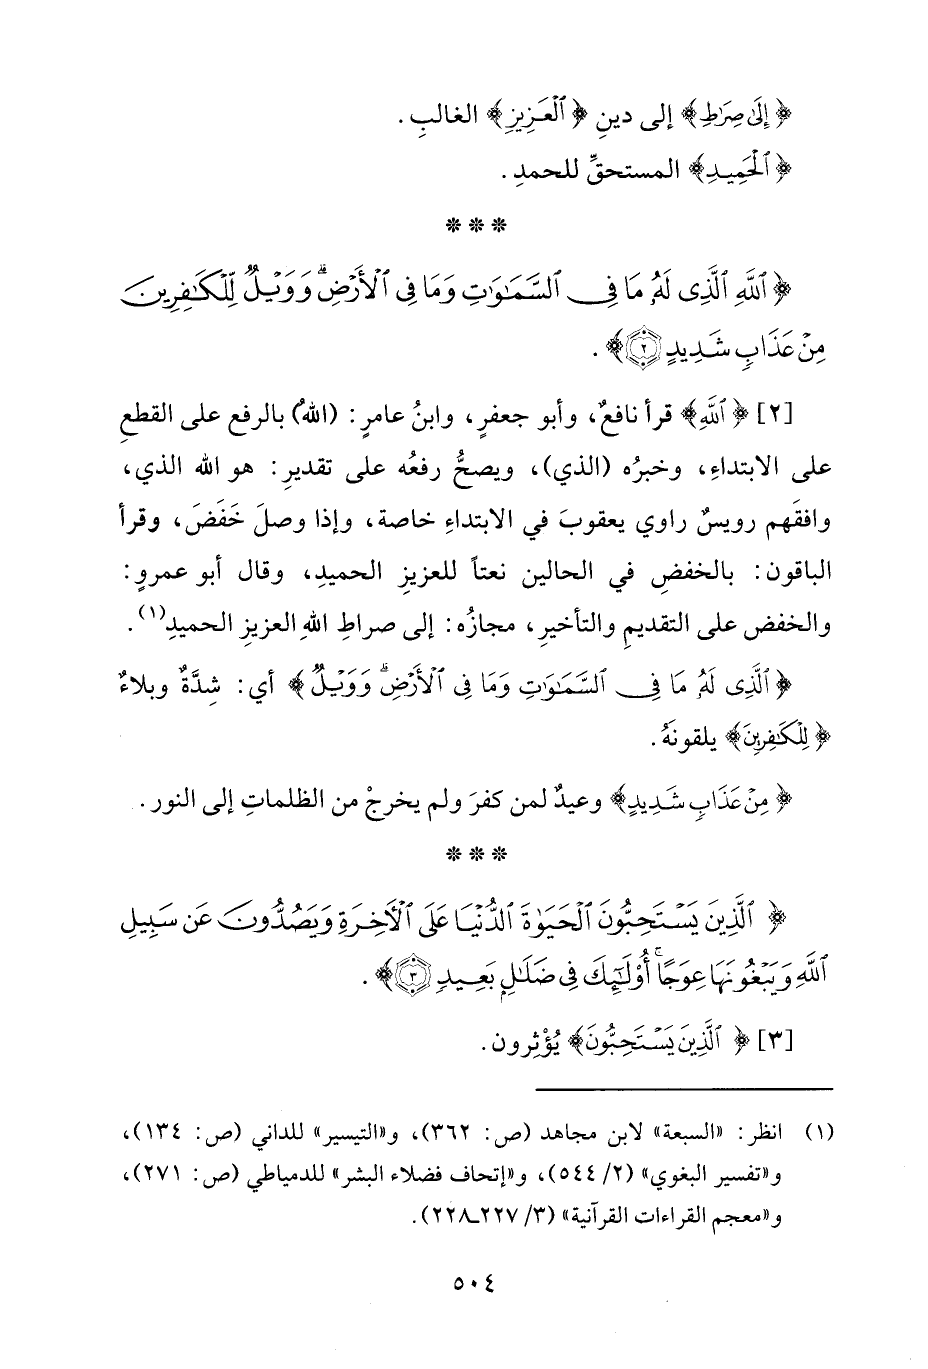 ﴿ إِلَىٰ صِرَٰطِ﴾ إلى دينِ ﴿ ٱلْعَزِيزِ﴾ الغالبِ .
﴿ ٱلْحَمِيدِ﴾ المستحقِّ للحمدِ .
***
﴿ ٱللَّهِ ٱلَّذِى لَهُۥ مَا فِى ٱلسَّمَٰوَٰتِ وَمَا فِى ٱلْأَرْضِ ۗ وَوَيْلٌ لِّلْكَٰفِرِينَ
مِنْ عَذَابٍ شَدِيدٍ ٢﴾ .
[٢] ﴿ ٱللَّهِ﴾ قرأ نافعٌ، وأبو جعفرٍ، وابنُ عامرٍ: (اللهُ) بالرفع على القطعِ
على الابتداءِ، وخبرُه (الذي)، ويصحُّ رفعُه على تقديرِ: هو الله الذي،
وافقَهم رويسٌ راوي يعقوبَ في الابتداءِ خاصة، وإذا وصلَ خَفَضَ، وقرأ
الباقون: بالخفضِ في الحالين نعتاً للعزيزِ الحميدِ، وقال أبو عمرٍو:
والخفض على التقديمِ والتأخيرِ، مجازُه: إلى صراطِ اللهِ العزيزِ الحميدِ(١).
﴿ ٱلَّذِى لَهُۥ مَا فِى ٱلسَّمَٰوَٰتِ وَمَا فِى ٱلْأَرْضِ ۗ وَوَيْلٌ﴾ أي: شِدَّةٌ وبلاءٌ
﴿ لِلْكَٰفِرِينَ﴾ يلقونَهُ.
﴿ مِنْ عَذَابٍ شَدِيدٍ﴾ وعيدٌ لمن كفرَ ولم يخرجْ من الظلماتِ إلى النور .
***
﴿ ٱلَّذِينَ يَسْتَحِبُّونَ ٱلْحَيَوٰةَ ٱلدُّنْيَا عَلَى ٱلْأَخِرَةِ وَيَصُدُّونَ عَن سَبِيلِ
ٱللَّهِ وَيَبْغُونَهَا عِوَجًا ۚ أُو۟لَٰٓئِكَ فِى ضَلَٰلٍۭ بَعِيدٍ ٣﴾ .
[٣] ﴿ ٱلَّذِينَ يَسْتَحِبُّونَ﴾ يُؤْثِرون.
(١) انظر: «السبعة» لابن مجاهد (ص: ٣٦٢)، و«التيسير» للداني (ص: ١٣٤)،
و«تفسير البغوي» (٢/ ٥٤٤)، و«إتحاف فضلاء البشر» للدمياطي (ص: ٢٧١)،
و«معجم القراءات القرآنية» (٣/ ٢٢٧ـ٢٢٨).
٥٠٤